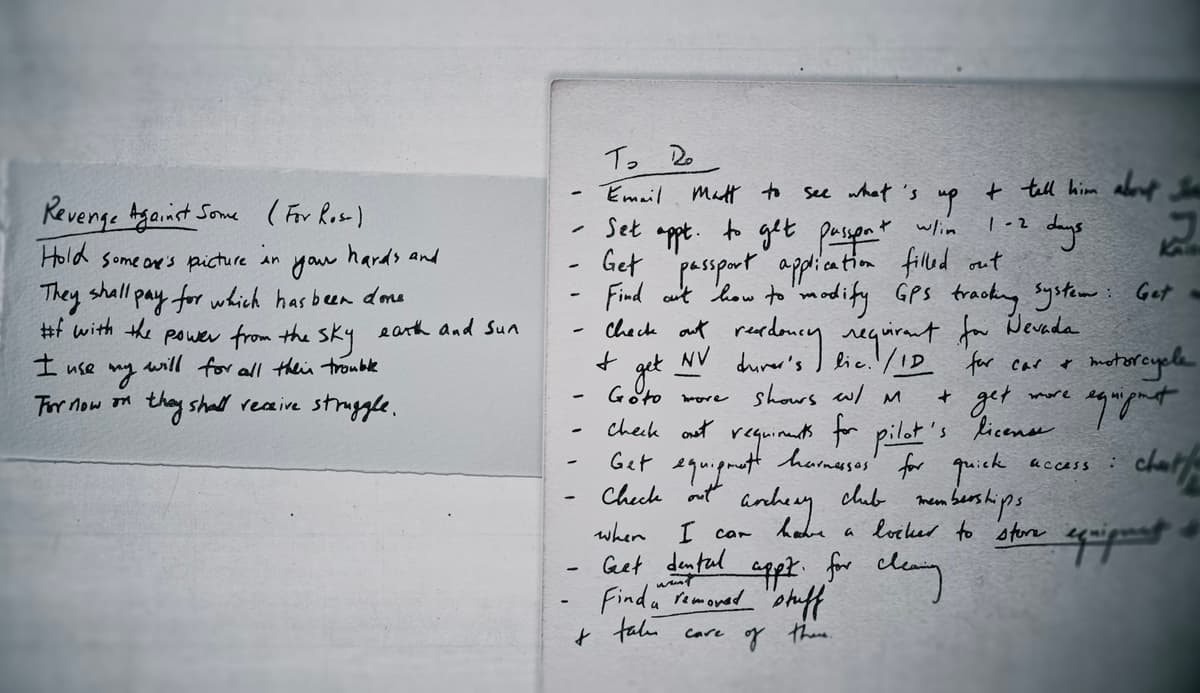 Revenge Against Some (For Rose)
Hold someone's picture in your hands and
They shall pay for which has been done
#f with the power from the sky earth and sun
I use my will for all their trouble
For now on they shall receive struggle.
To Do
- Email Matt to see what's up + tell him about
- Set appt. to get passport w/in 1-2 days
- Get passport application filled out
- Find out how to modify GPS tracking system: Get
- Check out for Nevada
+ get NV driver's lic./ID for car + motorcycle
- Go to more shows w/ M + get more equipmt
- check out for pilot's license
- Get for quick access:
- Check out archery club memberships
when I can have a locker to store equipment
- Get dental appt. for cleaning
- Find a want removed stuff
+ take care of them.